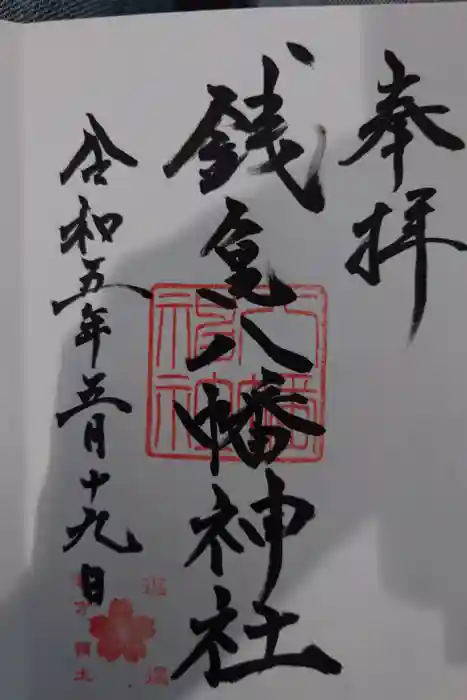 奉拝
銭亀八幡神社
令和五年五月十九日
八幡
神社